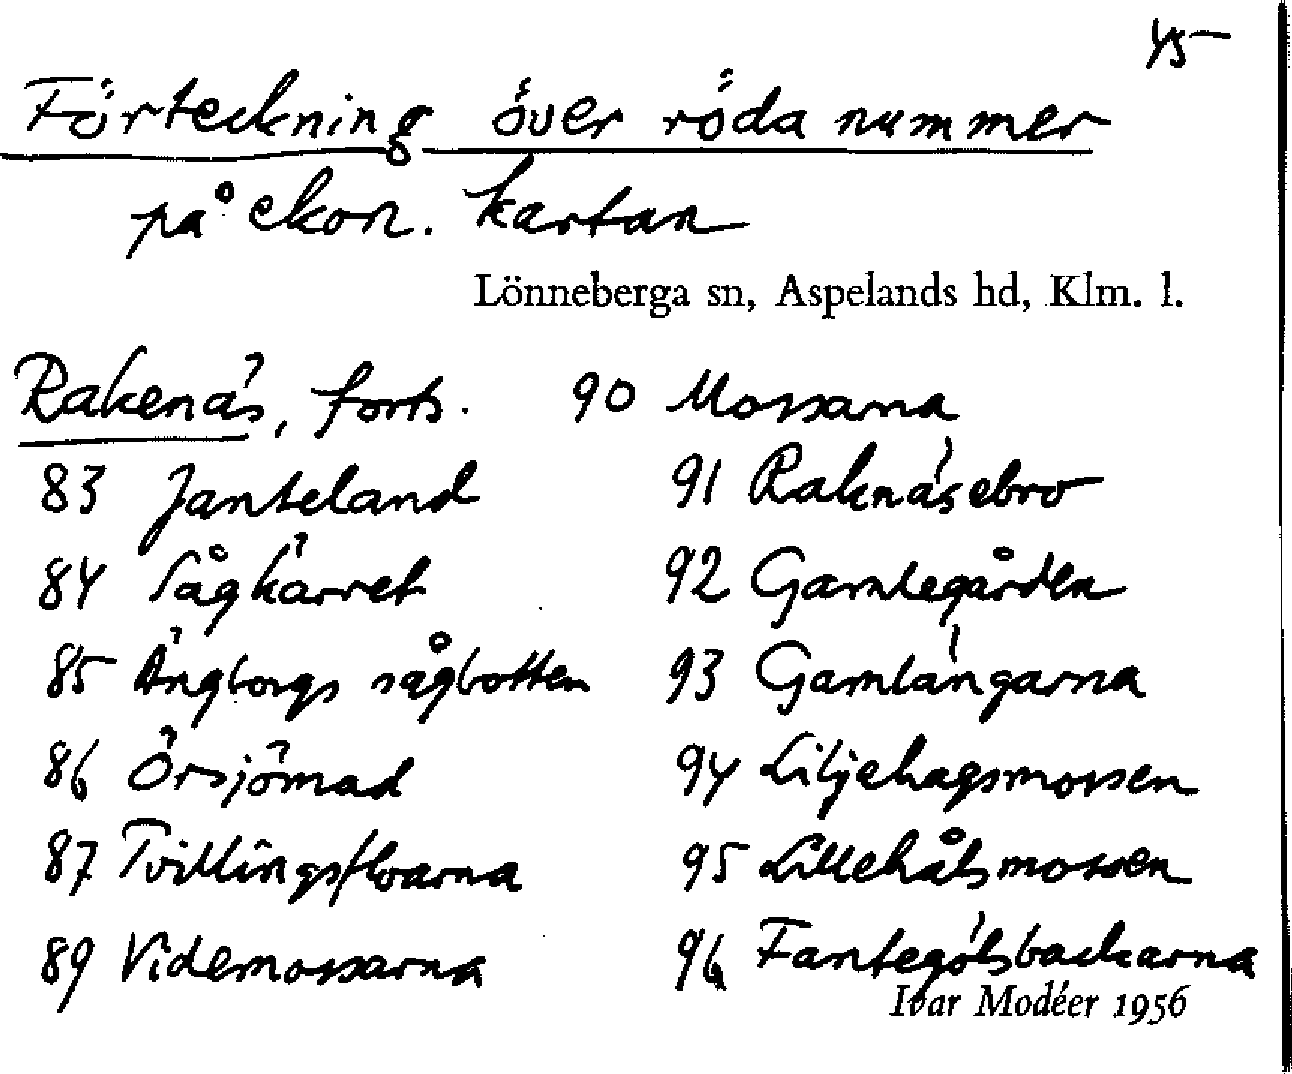 45
Förteckning över röda nummer
på ekon. kartan
Lönneberga sn, Aspelands hd, Klm. l.
Rakenäs, forts.
83 Janteland
84 Sågkärret
85 Ängborgs sågbotten
86 Örsjömad
87 Tvillingsflvarna
89 Videmossarna
90 Mossarna
91 Raknäsebro
92 Gamlegården
93 Gamlängarna
94 Liljehagsmossen
95 Lillehålsmossen
96 Fantegölsbackarna
Ivar Modéer 1956